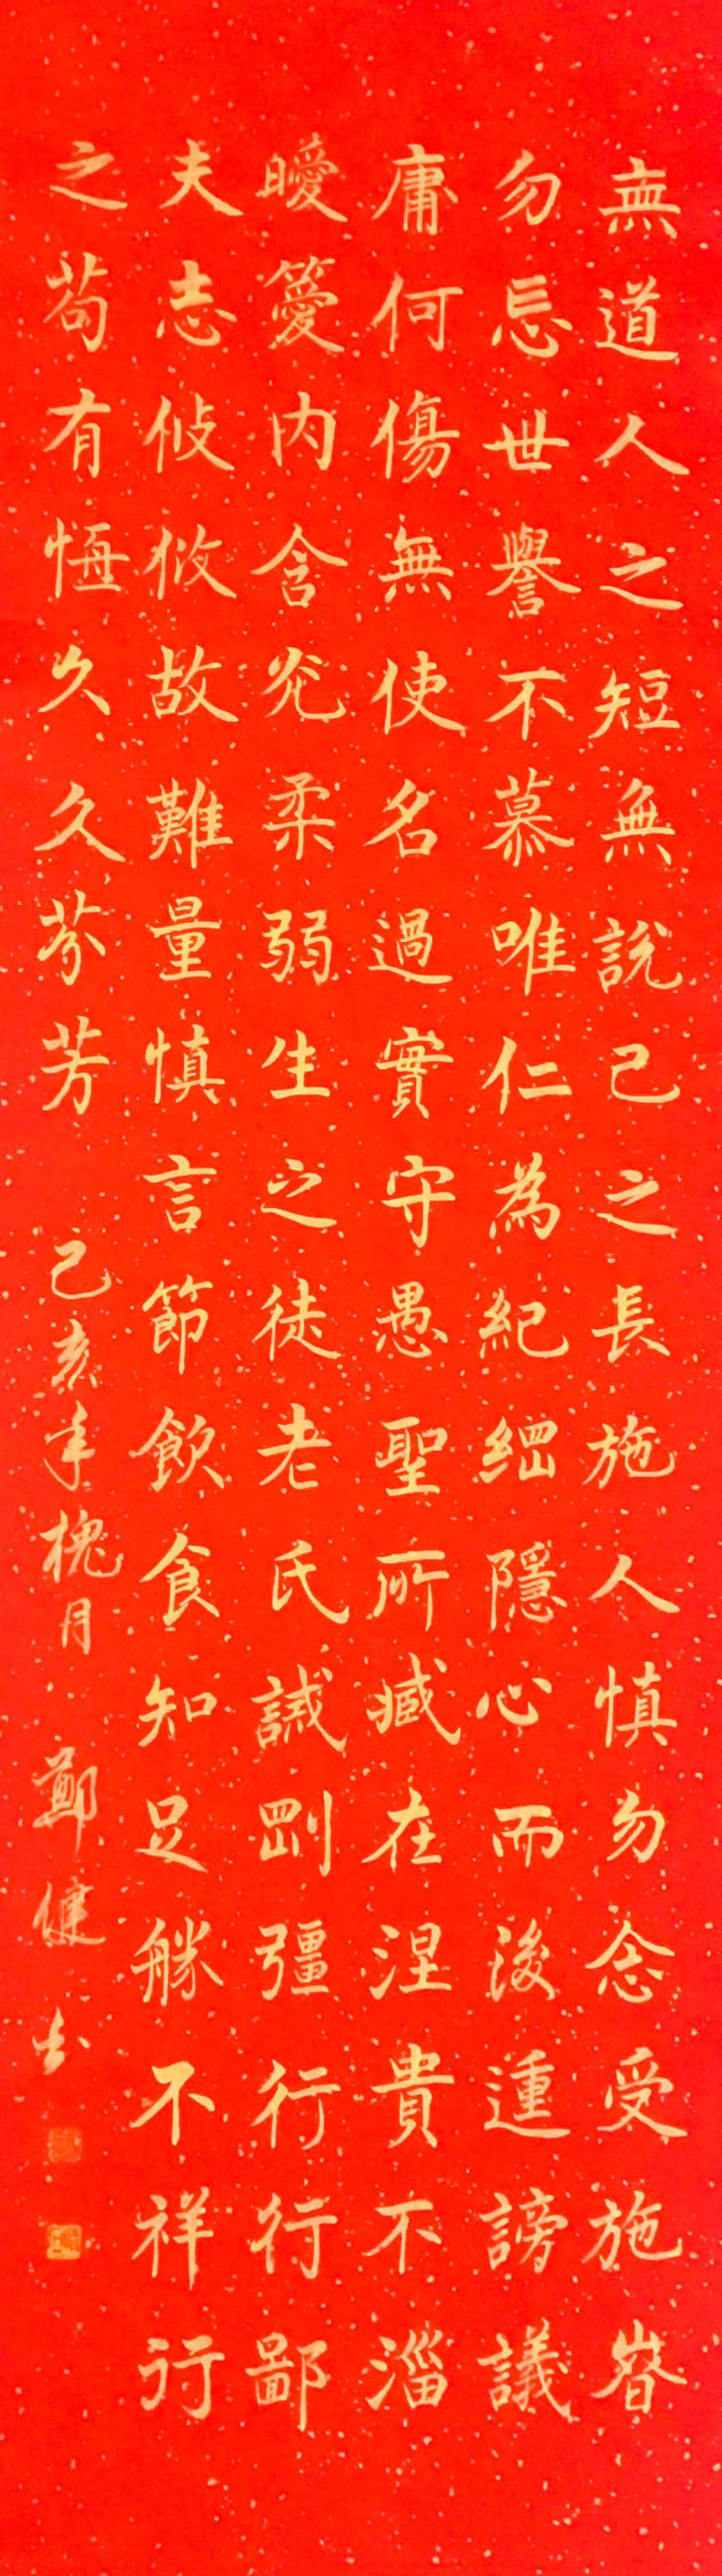 無道人之短無說己之長施人慎勿念受施眘
勿忘世譽不慕唯仁為紀綱隱心而後動謗議
庸何傷無使名過實守愚聖所臧在涅貴不淄
曖曖內含光柔弱生之徒老氏誡剛彊行行鄙
夫志悠悠故難量慎言節飲食知足勝不祥行
之苟有恆久久芬芳 己亥年槐月 鄭健書